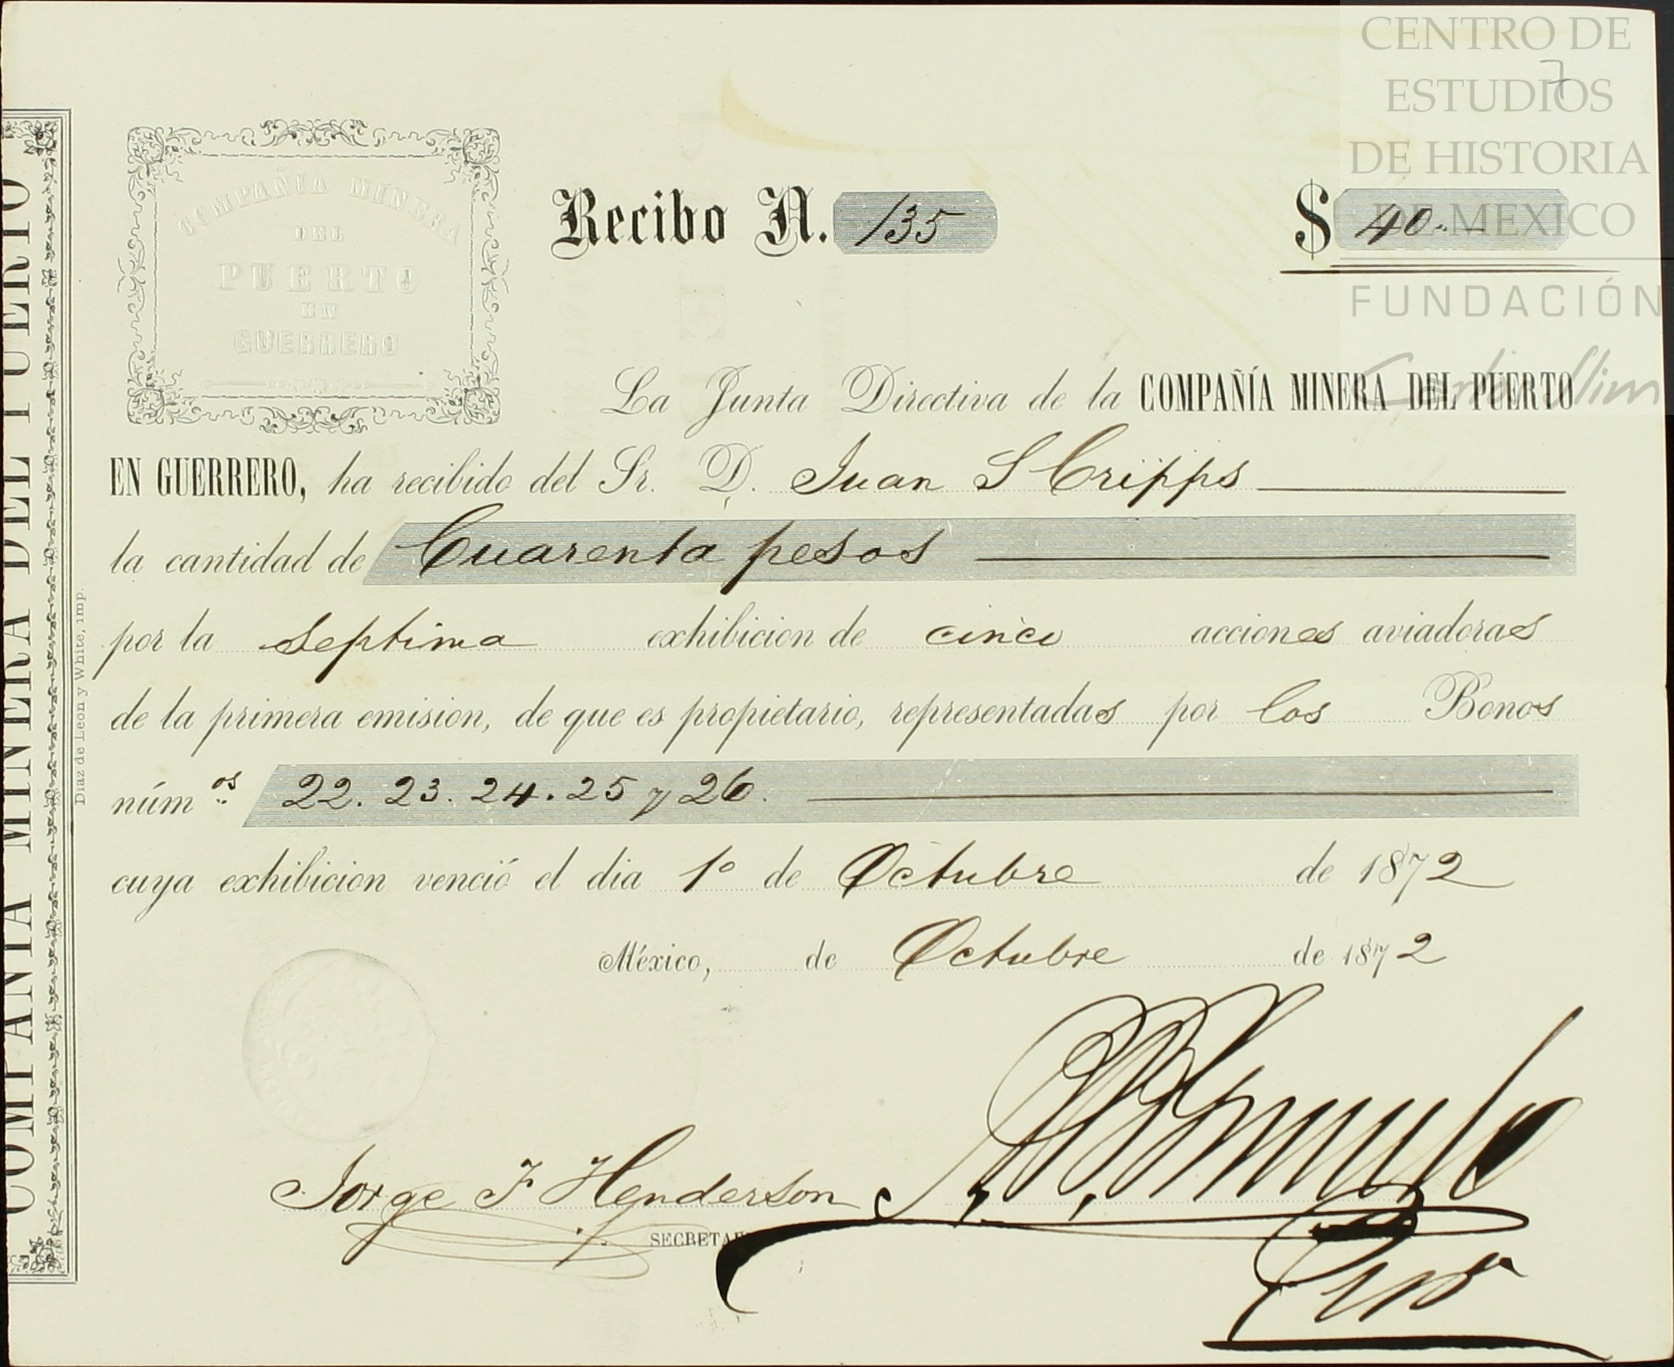 CENTRO DE
ESTUDIOS
DE HISTORIA
DE MEXICO
FUNDACIÓN
Carlos Slim
7
COMPAÑIA MINERA DEL PUERTO
Diaz de Leon y White, imp.
COMPAÑIA MINERA
DEL
PUERTO
EN
GUERRERO
Recibo N. 135
$ 40.
La Junta Directiva de la COMPAÑÍA MINERA DEL PUERTO
EN GUERRERO, ha recibido del Sr. D. Juan S Cripps
la cantidad de Cuarenta pesos
por la septima exhibicion de cinco acciones aviadoras
de la primera emision, de que es propietario, representadas por los Bonos
núm os 22. 23. 24. 25 y 26.
cuya exhibicion venció el dia 1º de Octubre de 1872
México, de Octubre de 1872
Jorge F Henderson
SECRETA